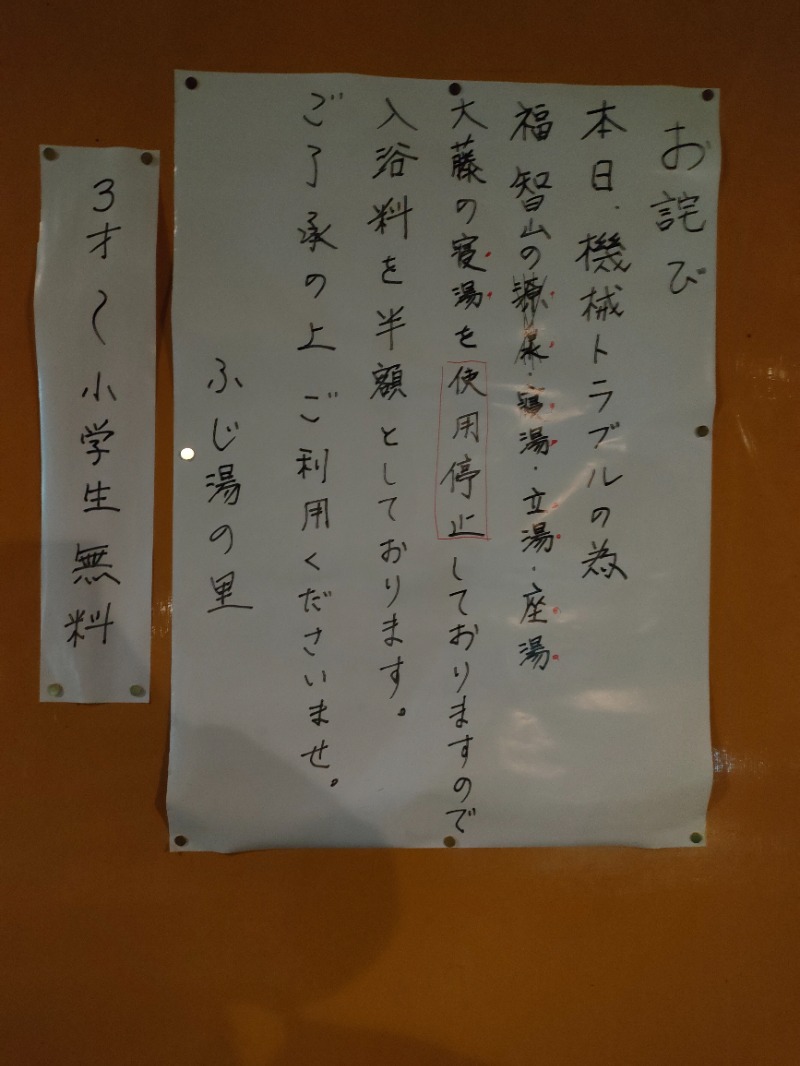 お詫び
本日、機械トラブルの為
福智山の源泉・寝湯・立湯・座湯
大藤の寝湯を使用停止しておりますので
入浴料を半額としております。
ご了承の上ご利用くださいませ。
ふじ湯の里
3才〜小学生無料